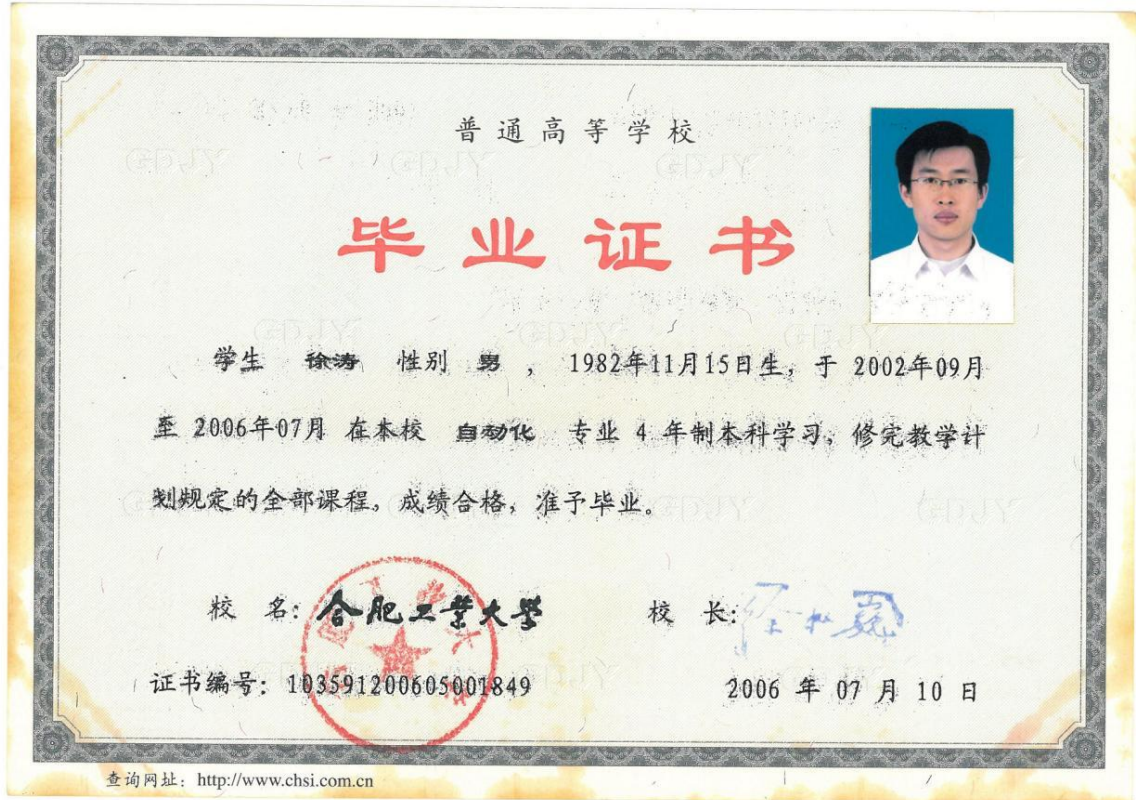 普通高等学校
毕业证书
学生 徐涛 性别 男 , 1982年11月15日生, 于 2002年09月
至 2006年07月 在本校 自动化 专业 4 年制本科学习, 修完教学计
划规定的全部课程, 成绩合格, 准予毕业。
校 名: 合肥工业大学 校 长:
证书编号: 103591200605001849 2006 年 07 月 10 日
查询网址: http://www.chsi.com.cn